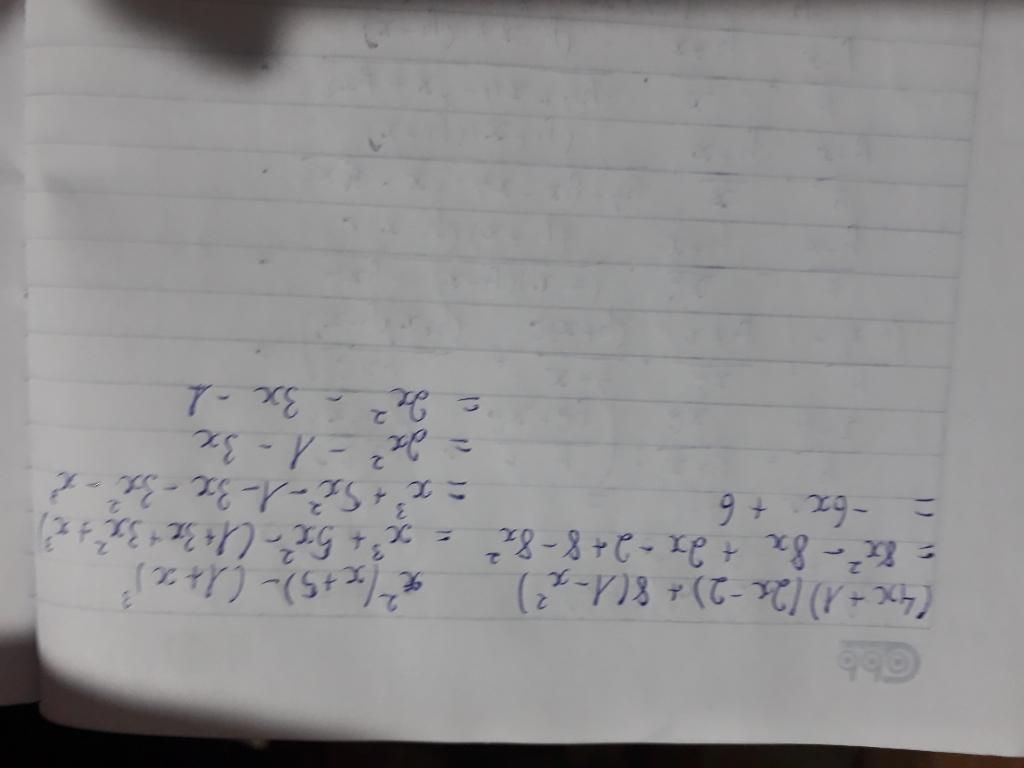 abb
(4x + 1)(2x - 2) + 8(1 - x²)
= 8x² - 8x + 2x - 2 + 8 - 8x²
= -6x + 6
x²(x + 5) - (1 + x)³
= x³ + 5x² - (1 + 3x + 3x² + x³)
= x³ + 5x² - 1 - 3x - 3x² - x³
= 2x² - 1 - 3x
= 2x² - 3x - 1